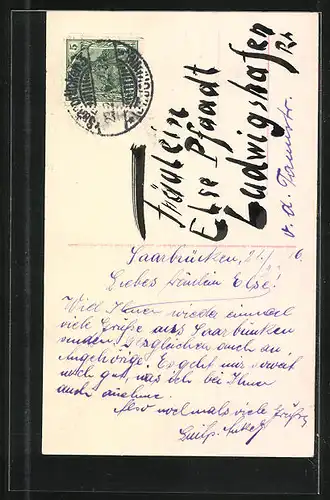 5
Fräulein
Else Pfaadt
Ludwigshafen
Rh
v. d. Tannstr.
Saarbrücken, 21.
Liebes Fräulein Else!
Will Ihnen wieder einmal
viele Grüße aus Saarbrücken
senden, desgleichen auch an
Angehörige. Es geht mir soweit
noch gut, was ich bei Ihnen
auch annehme.
Also nochmals viele Grüße